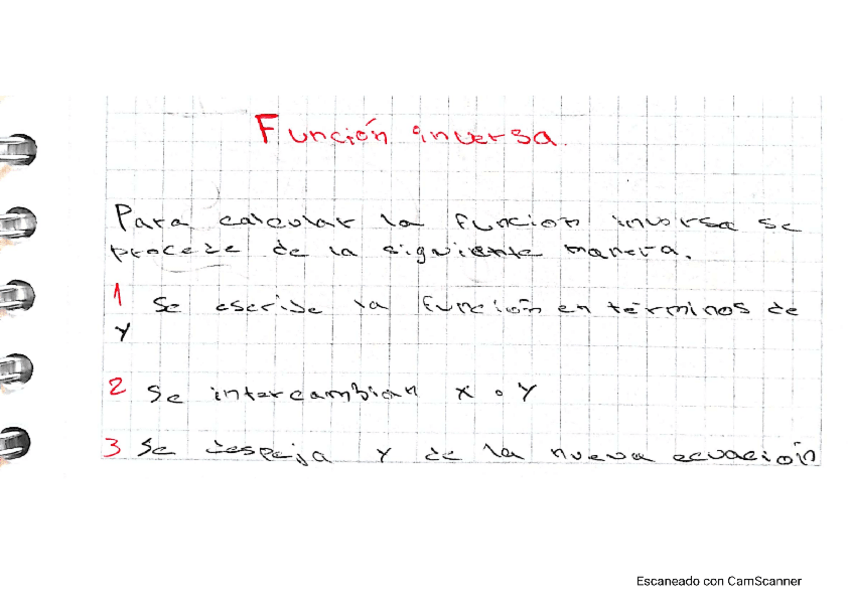 Función inversa.
Para calcular la función inversa se
procede de la siguiente manera.
1 Se escribe la función en términos de
y
2 Se intercambian x o y
3 Se despeja y de la nueva ecuación
Escaneado con CamScanner